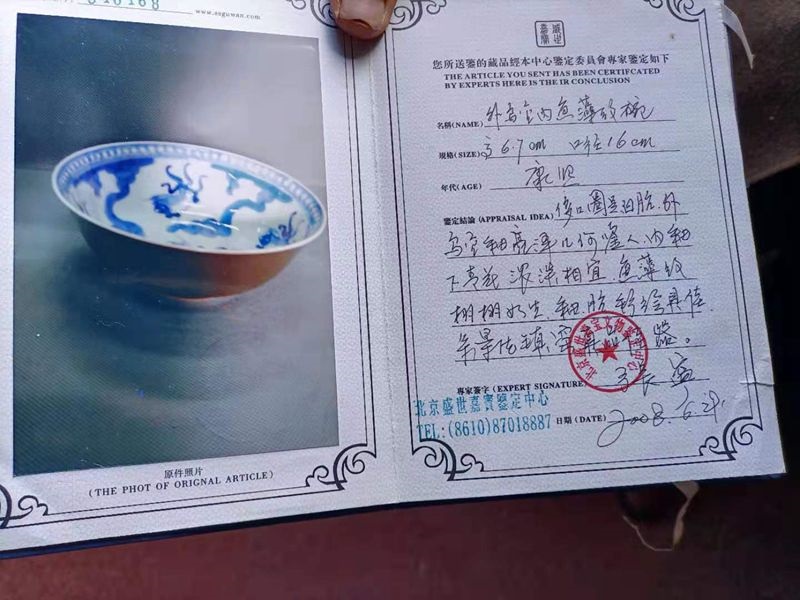 www.ssguwan.com
原件照片
(THE PHOT OF ORIGNAL ARTICLE)
盛世嘉寶
您所送鉴的藏品經本中心鑒定委員會專家鑒定如下
THE ARTICLE YOU SENT HAS BEEN CERTIFCATED
BY EXPERTS HERE IS THE IR CONCLUSION
名稱(NAME) 外乌金内鱼藻纹碗
規格(SIZE) 高6.7cm 口径16cm
年代(AGE) 康熙
鑒定結論(APPRAISAL IDEA) 圈足白胎.外
乌金釉亮泽几何鉴人.内釉
下青花浓淡相宜.鱼藻纹
栩栩如生.釉.胎.彩绘具佳
系景德镇窑 器。
專家簽字(EXPERT SIGNATURE)
北京盛世嘉寶鑒定中心
TEL:(8610)87018887 日期(DATE) 2008.6.29.